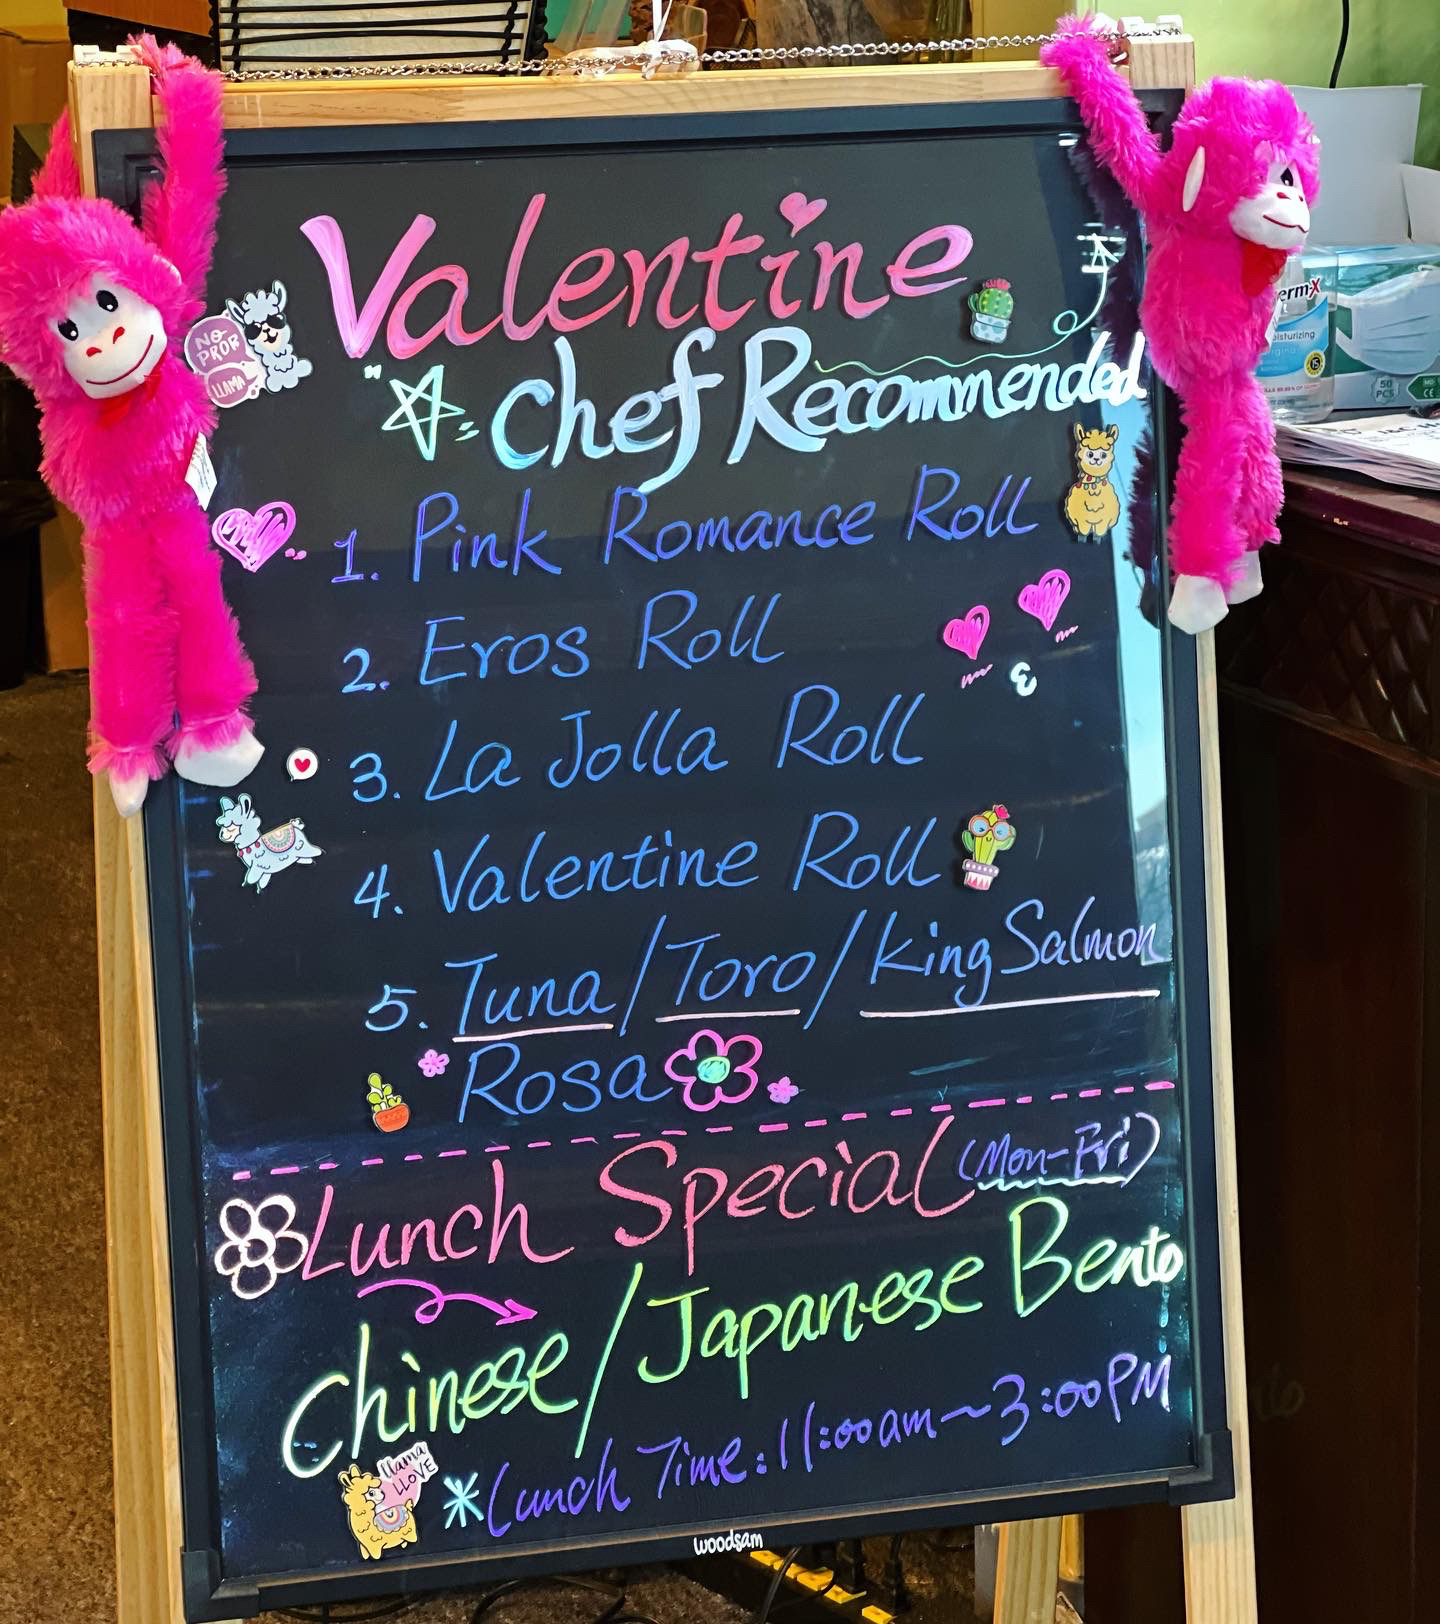 Valentine
"☆" Chef Recommended
1. Pink Romance Roll
2. Eros Roll
3. La Jolla Roll
4. Valentine Roll
5. Tuna/Toro/King Salmon
Rosa
Lunch Special (Mon-Fri)
Chinese/Japanese Bento
*Lunch Time: 11:00am~3:00PM
woodsam
NO
PROB
LLAMA
llama
LLOVE
50
PCS
CE